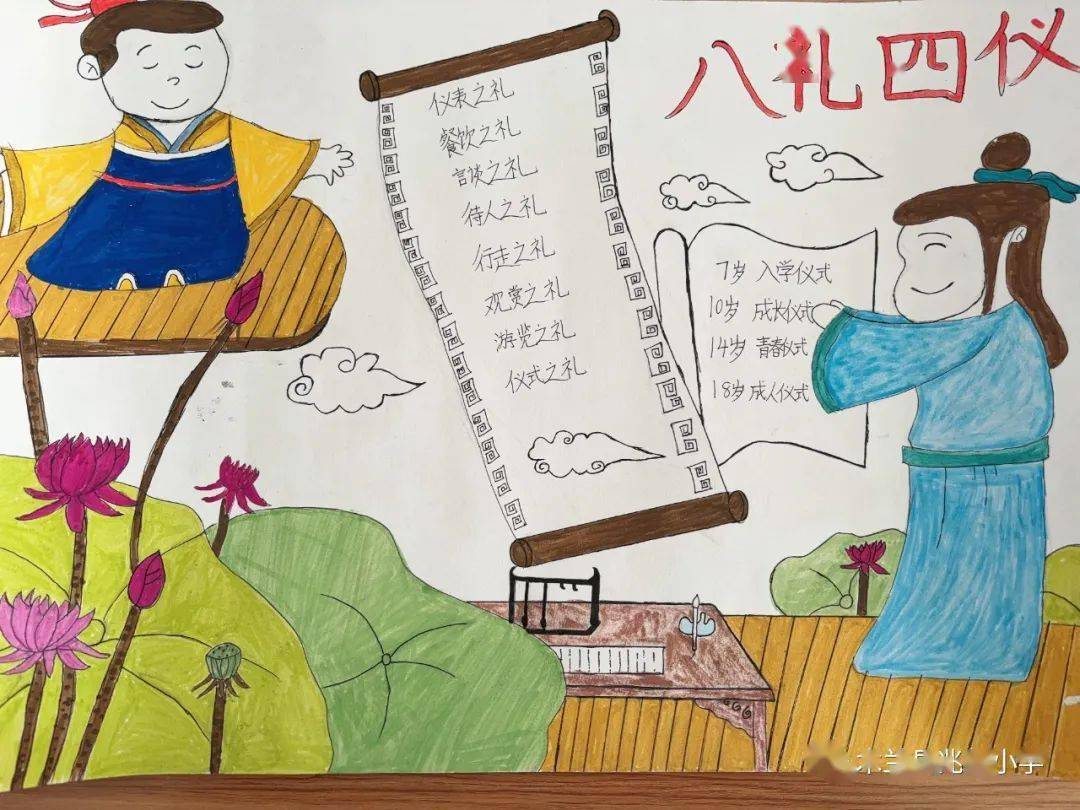 八礼四仪
仪表之礼
餐饮之礼
言谈之礼
待人之礼
行走之礼
观赏之礼
游览之礼
仪式之礼
7岁 入学仪式
10岁 成长仪式
14岁 青春仪式
18岁 成人仪式